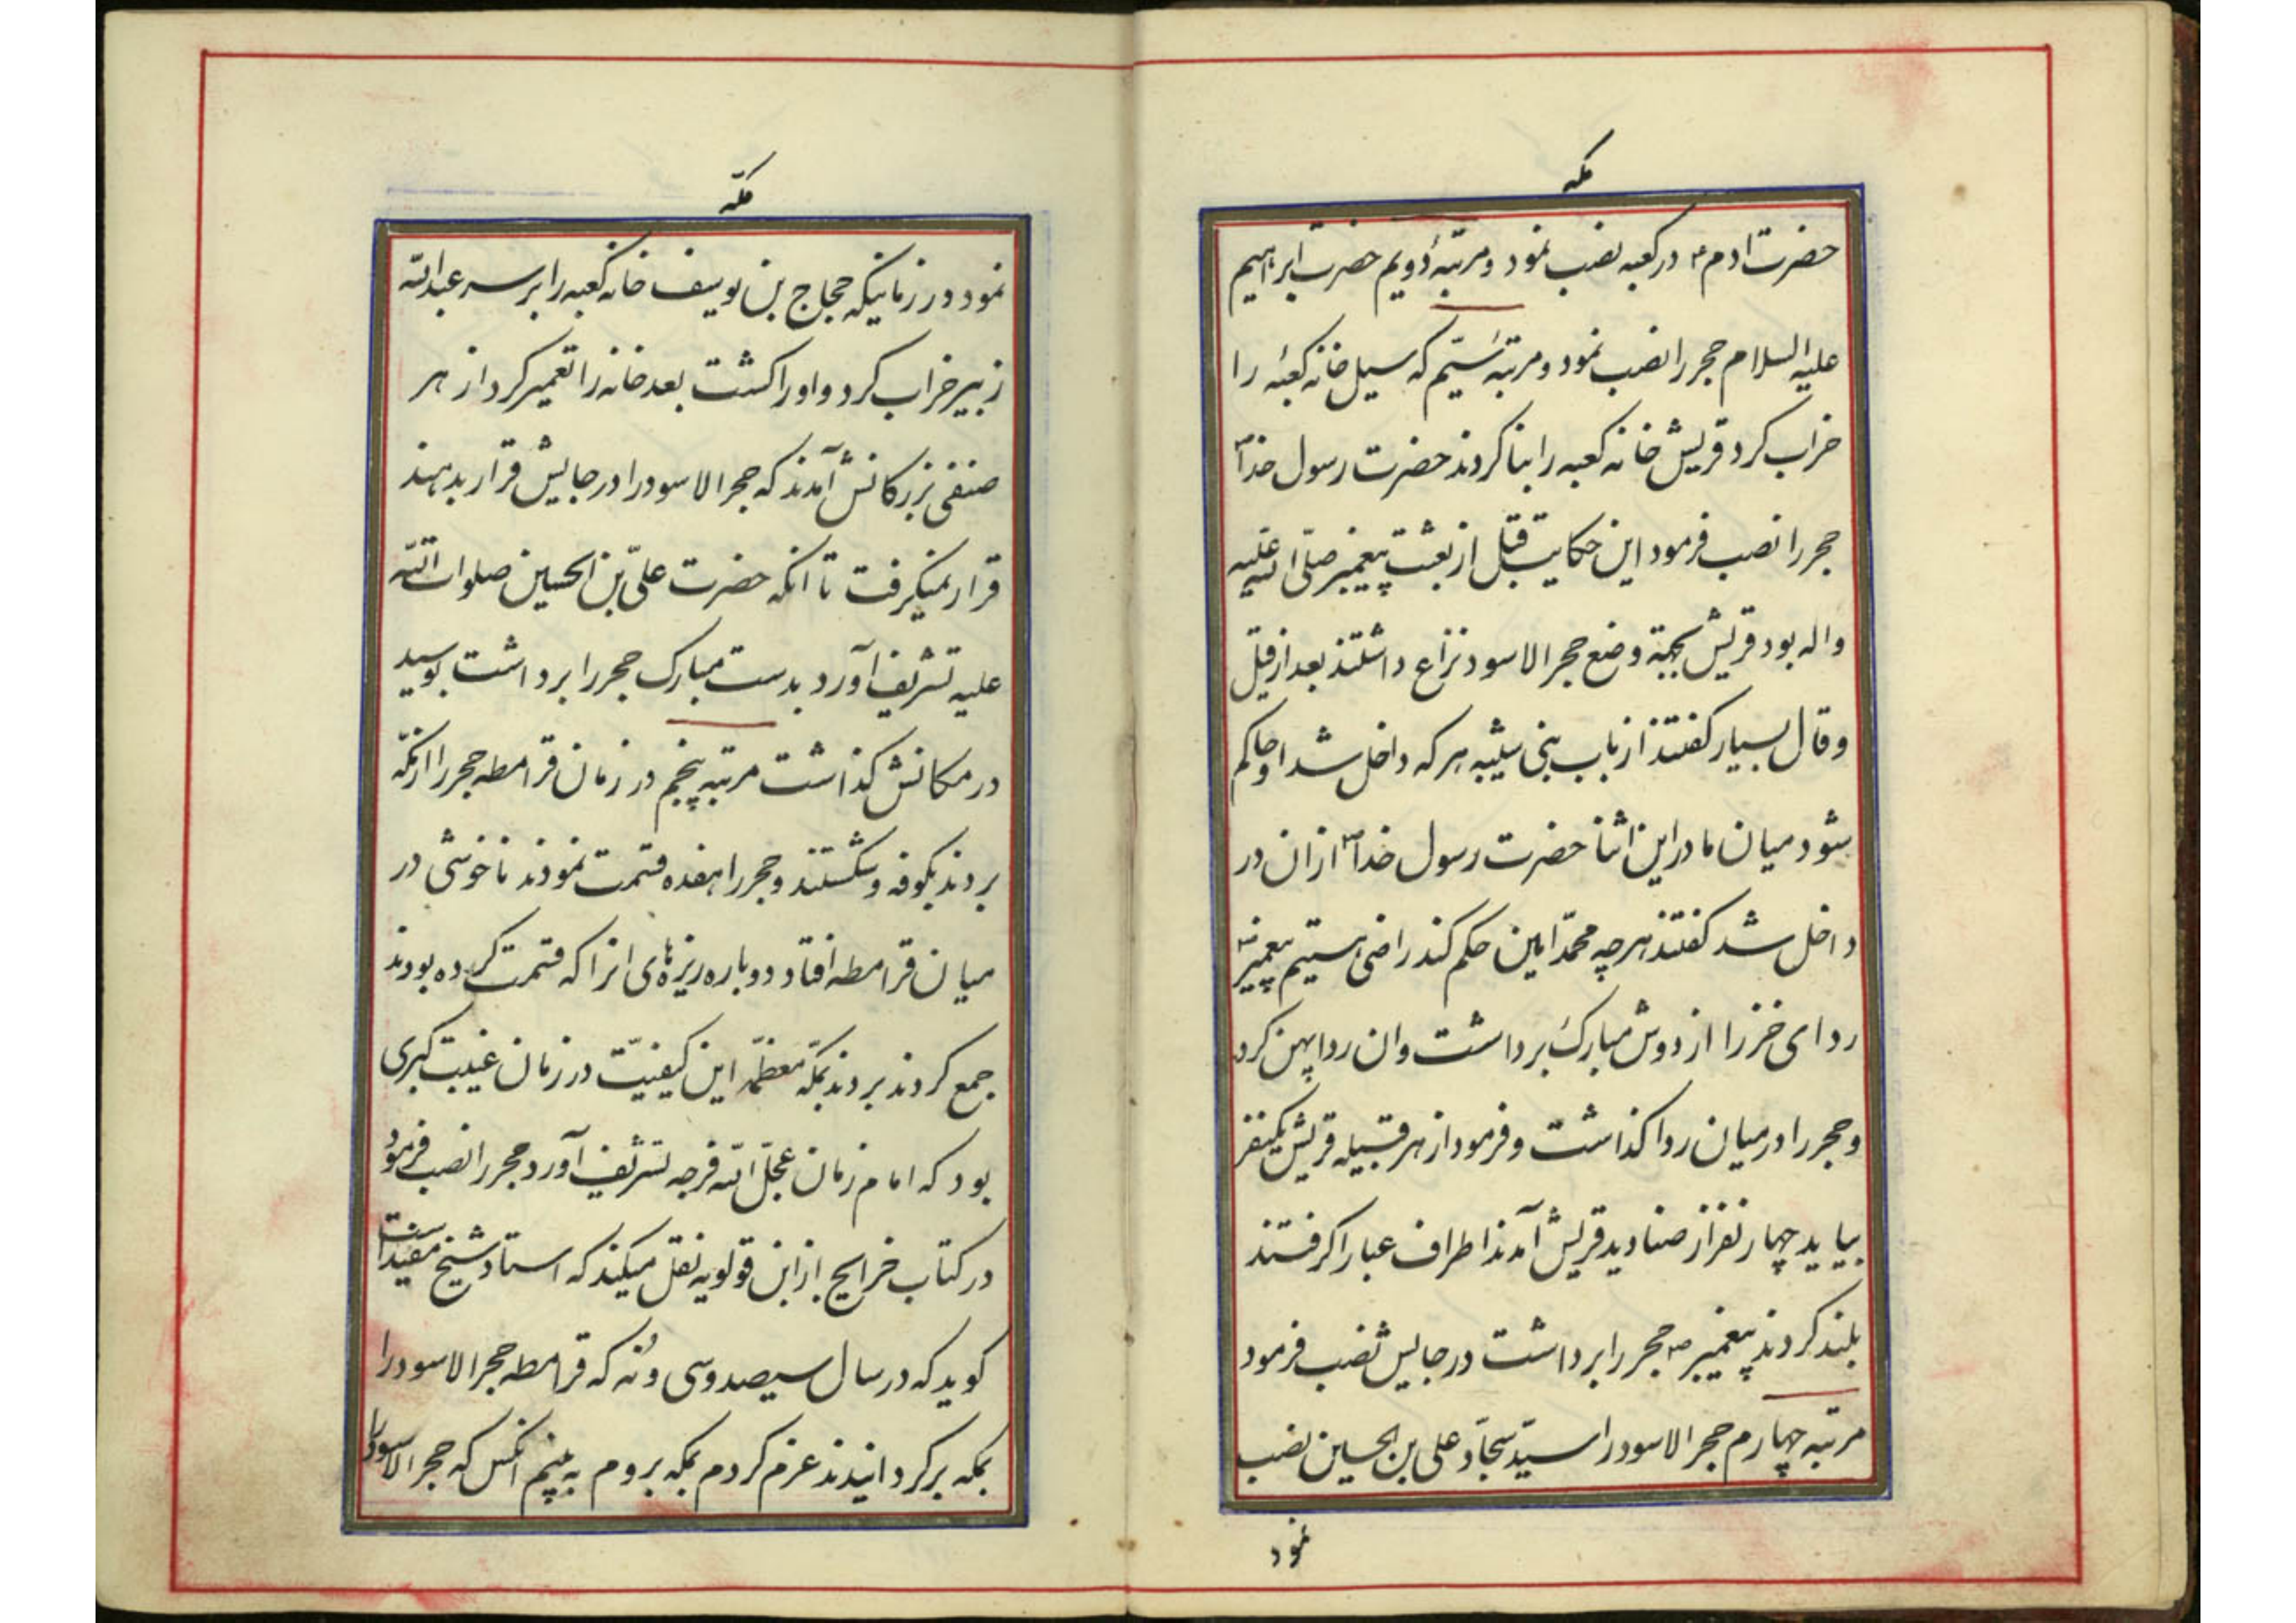 مکه
حضرت ادم ع در کعبه نصب نمود و مرتبهٔ دویم حضرت ابراهیم
علیه السلام حجر را نصب نمود و مرتبهٔ سیّم که سیل خانه کعبه را
خراب کرد قریش خانه کعبه را بنا کردند حضرت رسول خدا ص
حجر را نصب فرمود این حکایت قبل از بعثت پیغمبر صلّی الله علیه
واله بود قریش بجهة وضع حجر الاسود نزاع داشتند بعد از قیل
وقال بسیار کفتند از باب بنی شیبه هر که داخل شد او حاکم
شود میان ما در این اثنا حضرت رسول خدا ص از ان در
داخل شد کفتند هر چه محمّد امین حکم کند راضی هستیم پیغمبر ص
ردای خز را از دوش مبارک برداشت وان ردا پهن کرد
و حجر را در میان ردا کذاشت و فرمود از هر قبیله قریش یکنفر
بیاید چهار نفر از صنادید قریش آمدند اطراف عبا را کرفتند
بلند کردند پیغمبر ص حجر را برداشت در جایش نصب فرمود
مرتبه چهارم حجر الاسود را سیّد سجّاد علی بن الحسین نصب
نمود
مکّه
نمود در زمانیکه حجاج بن یوسف خانه کعبه را بر سر عبدالله
زبیر خراب کرد و او را کشت بعد خانه را تعمیر کرد از هر
صنفی بزرکانش آمدند که حجر الاسود را در جایش قرار بدهند
قرار نمیکرفت تا انکه حضرت علیّ بن الحسین صلوات الله
علیه تشریف آورد بدست مبارک حجر را برداشت بوسید
در مکانش کذاشت مرتبه پنجم در زمان قرامطه حجر را از مکّه
بردند بکوفه و شکستند و حجر را هفده قسمت نمودند ناخوشی در
میان قرامطه افتاد دوباره ریزه‌های انرا که قسمت کرده بودند
جمع کردند بردند بمکّه معظمّه این کیفیّت در زمان غیبت کبری
بود که امام زمان عجّل الله فرجه تشریف آورد حجر را نصب فرمود
در کتاب خرایج از ابن قولویه نقل میکند که استاد شیخ مفید است
کوید که در سال سیصد و سی و نه که قرامطه حجر الاسود را
بمکه برکردانیدند عزم کردم بمکه بروم به بینم انکس که حجر الاسود را